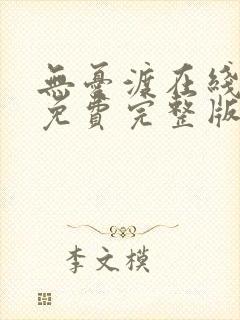 無憂渡在綫
免費完整版
李文模